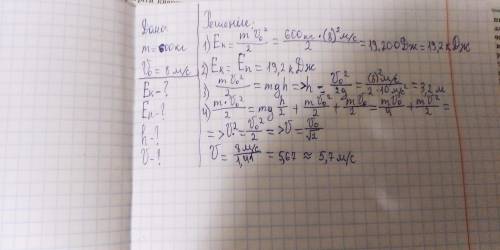 Дано
m=600кг
V₀=8м/с
Eк-?
Eп-?
h-?
V-?
Решение:
1) Eк = mV₀²/2 = 600кг·(8)²м/с/2 = 19,200Дж = 19,2кДж
2) Eк = Eп = 19,2кДж
3) mV₀²/2 = mgh => h = V₀²/2g = (8)²м/с/2·10м/с² = 3,2м
4) m·V₀²/2 = mg h/2 + mV₀²/2 + mV₀/2 = mV₀/4 + mV²/2 =
=> V² = V₀²/2 => V = V₀/√2
V = 8м/с/1,41 = 5,67 ≈ 5,7м/с